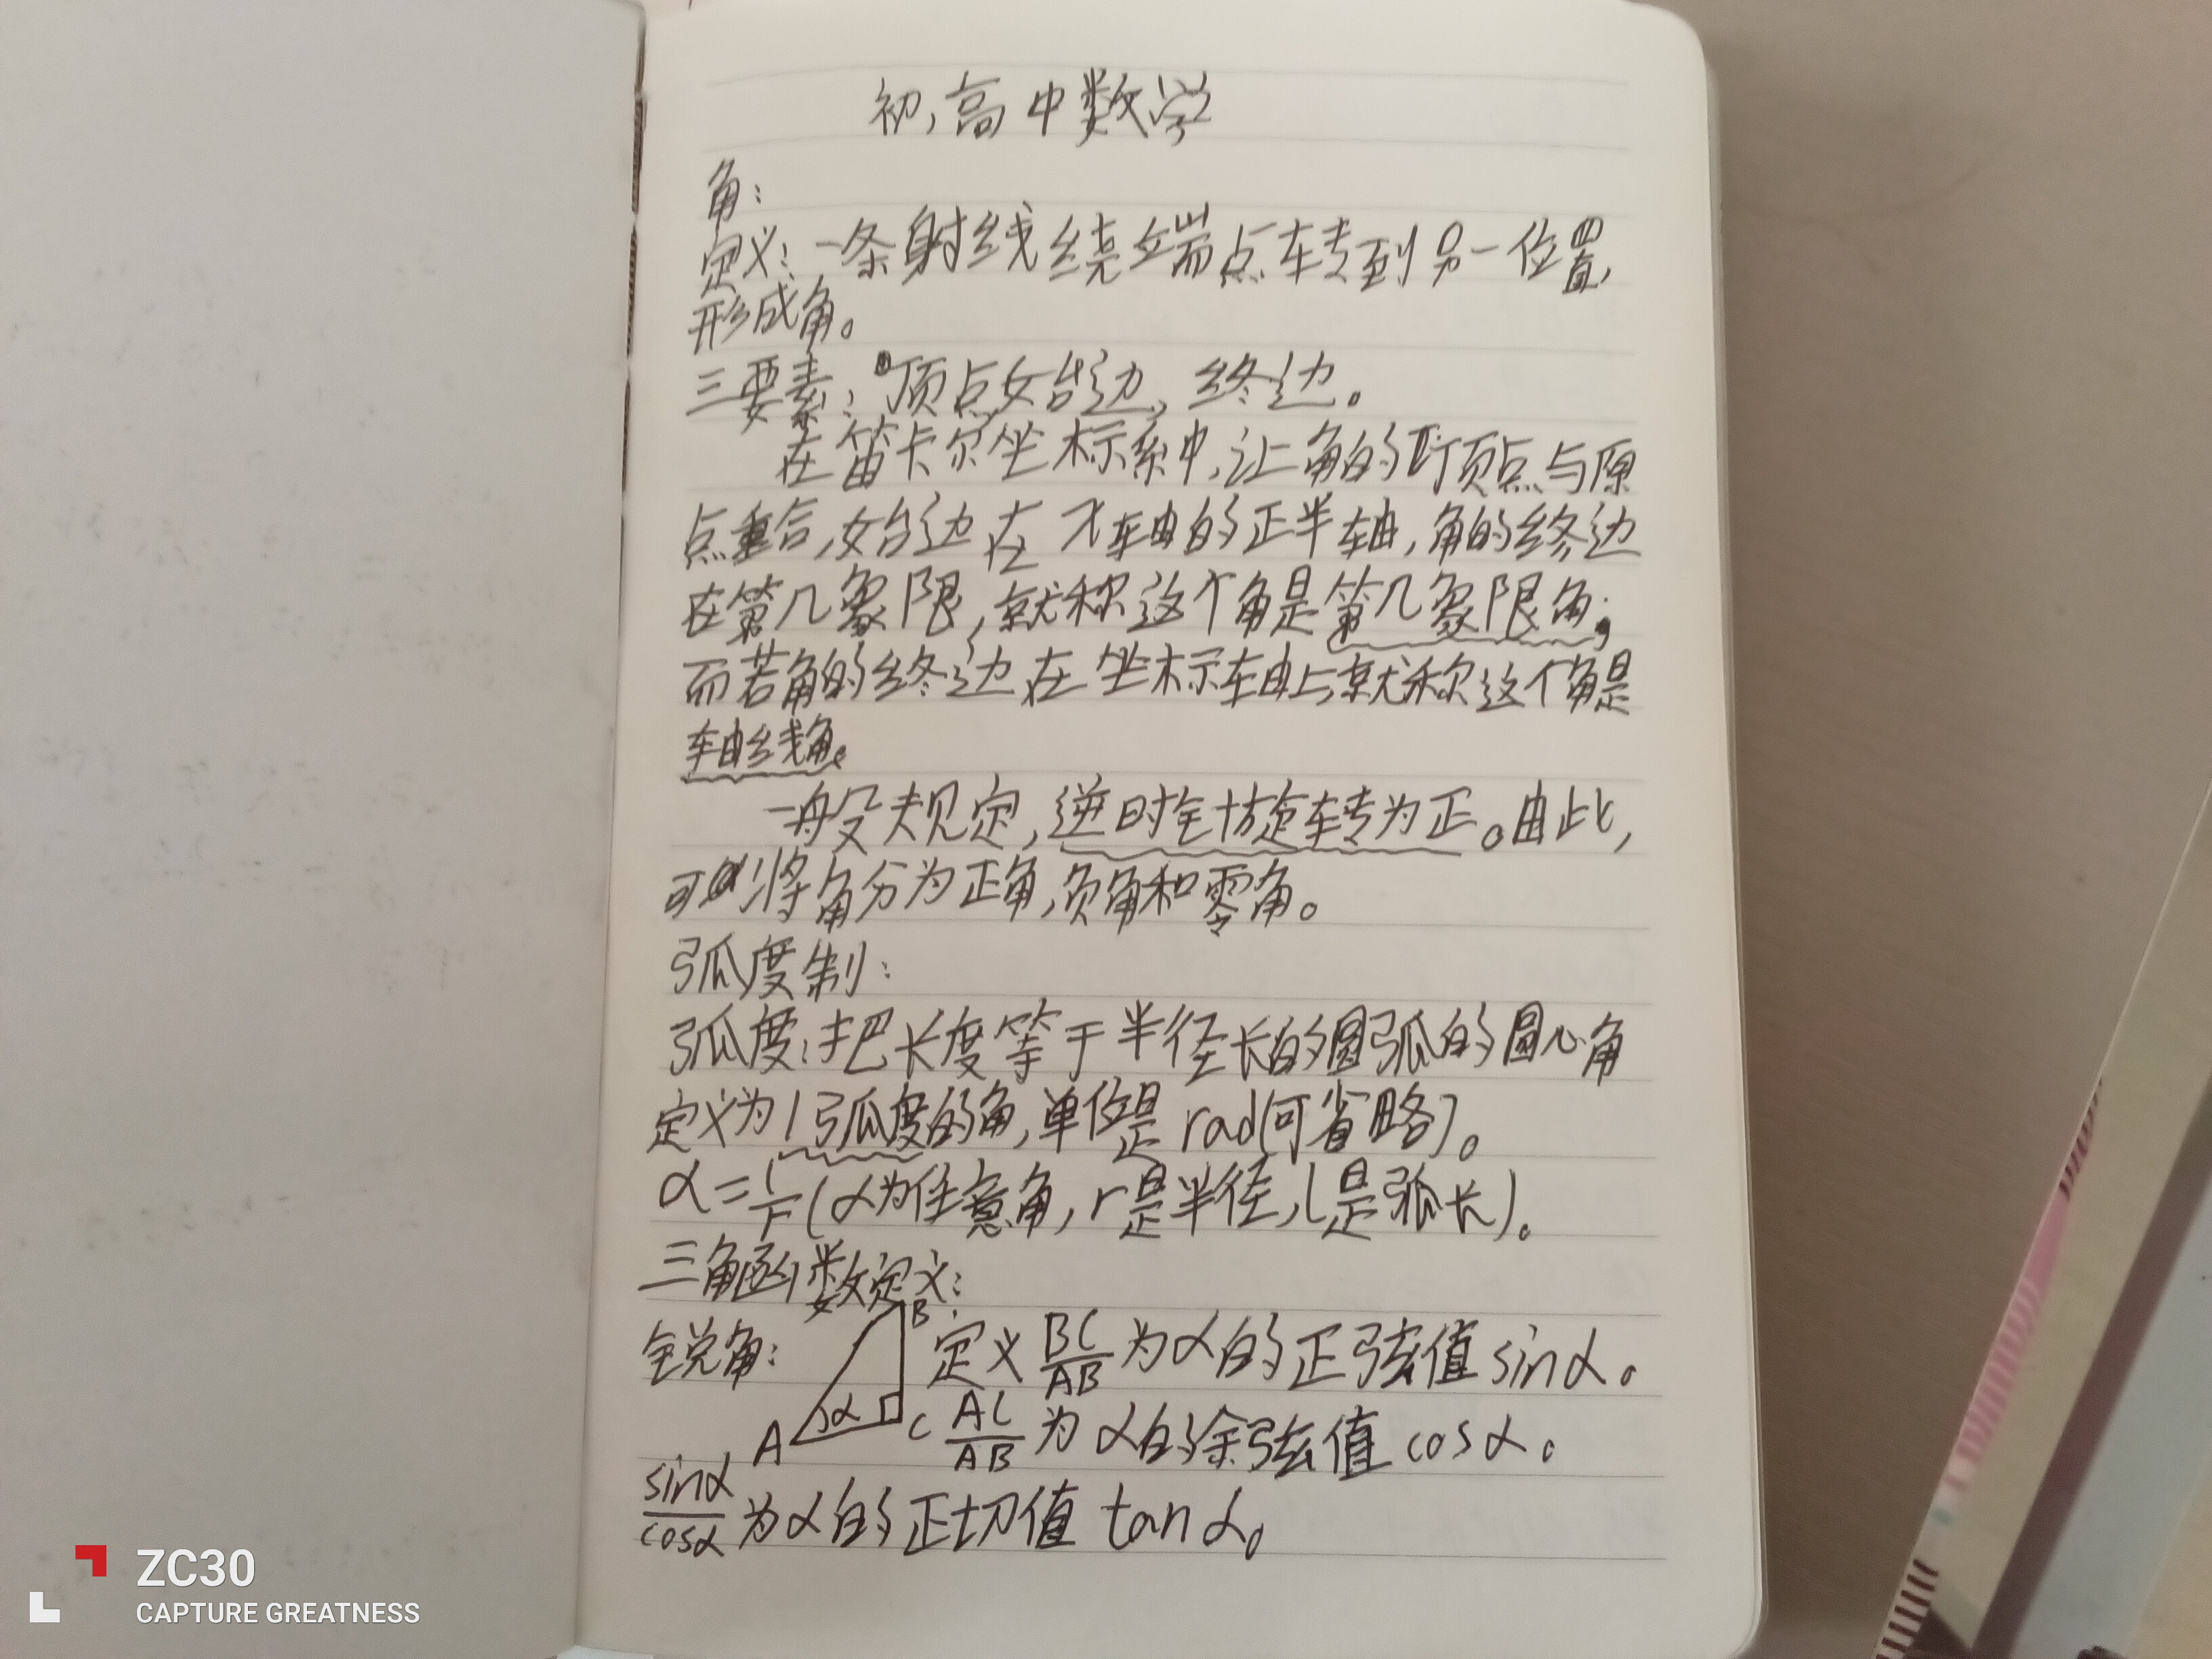 初,高中数学
角:
定义:一条射线绕端点转到另一位置,
形成角。
三要素:顶点,始边,终边。
在笛卡尔坐标系中,让角的顶点与原
点重合,始边在x轴的正半轴,角的终边
在第几象限,就称这个角是第几象限角;
而若角的终边在坐标轴上,就称这个角是
轴线角。
一般规定,逆时针旋转为正。由此,
可以将角分为正角,负角和零角。
弧度制:
弧度:把长度等于半径长的圆弧的圆心角
定义为1弧度的角,单位是rad(可省略)。
α=l/r(α为任意角,r是半径,l是弧长)。
三角函数定义:
锐角: A B C α 定义BC/AB为α的正弦值sinα。
AC/AB为α的余弦值cosα。
sinα/cosα为α的正切值tanα。
ZC30
CAPTURE GREATNESS